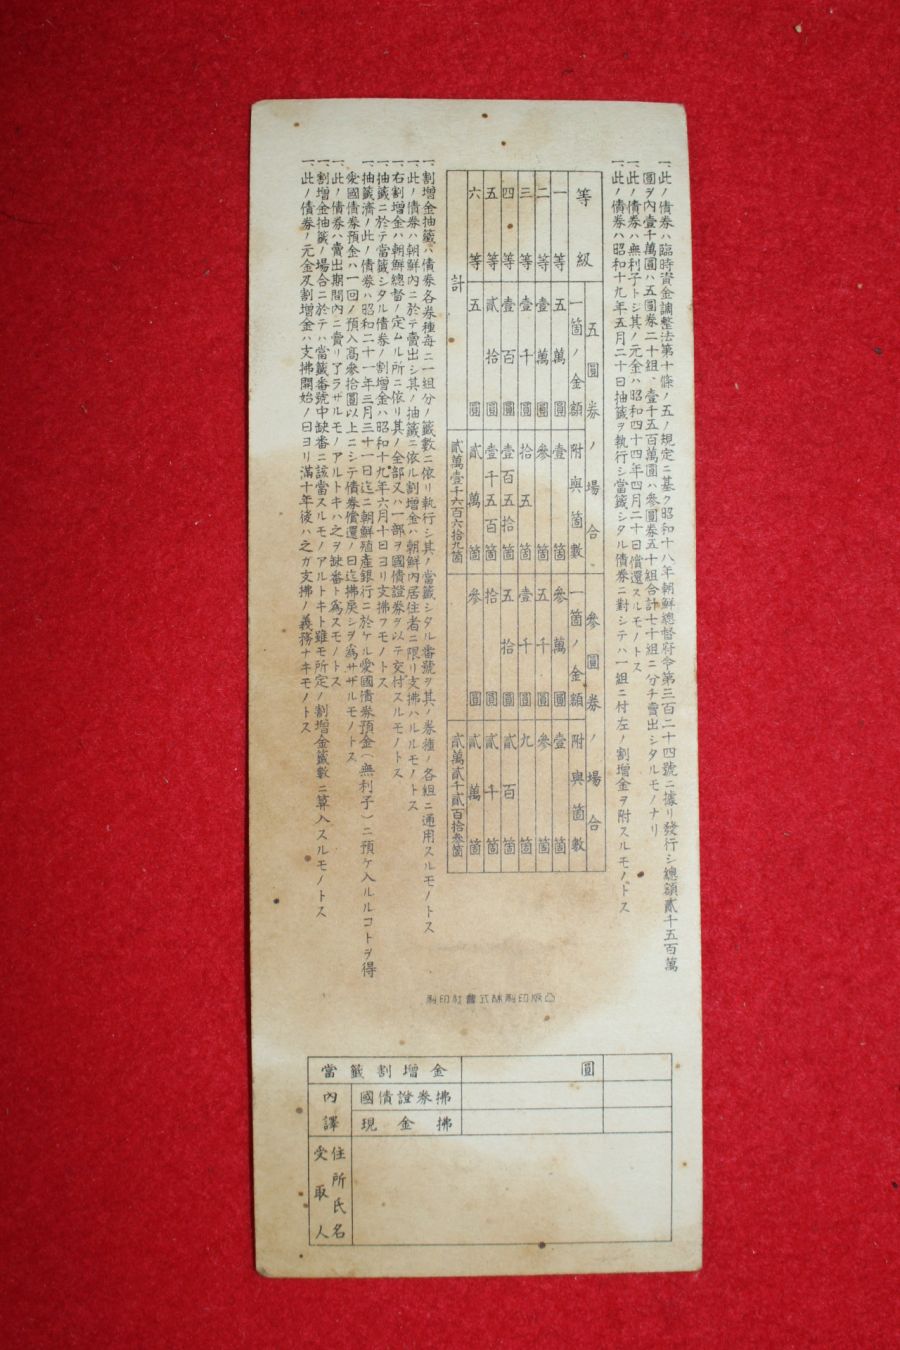 一、此ノ債券ハ臨時資金調整法第十條ノ五ノ規定ニ基ク昭和十八年朝鮮總督府令第三百二十四號ニ據リ發行シ總額貳千五百萬
圓ヲ內壹千萬圓ハ五圓券二十組、壹千五百萬圓ハ參圓券五十組合計七十組ニ分チ賣出シタルモノナリ
一、此ノ債券ハ無利子トシ其ノ元金ハ昭和四十四年四月二十日償還スルモノトス
一、此ノ債券ハ昭和十九年五月二十日抽籤ヲ執行シ當籤シタル債券ニ對シテハ一組ニ付左ノ割增金ヲ附スルモノトス
等級 五圓券ノ場合 參圓券ノ場合
一箇ノ金額 附與箇數 一箇ノ金額 附與箇數
一等 五萬圓 壹箇 參萬圓 壹箇
二等 壹萬圓 參箇 五千圓 參箇
三等 壹千圓 拾五箇 壹千圓 九箇
四等 壹百圓 壹百五拾箇 五拾圓 貳百箇
五等 貳拾圓 壹千五百箇 拾圓 貳千箇
六等 五圓 貳萬箇 參圓 貳萬箇
計 貳萬壹千六百六拾九箇 貳萬貳千貳百拾參箇
一、割增金抽籤ハ債券各券種每ニ一組分ノ籤數ニ依リ執行シ其ノ當籤シタル番號ヲ其ノ券種ノ各組ニ通用スルモノトス
一、此ノ債券ハ朝鮮內ニ於テ賣出シ其ノ抽籤ニ依ル割增金ハ朝鮮內居住者ニ限リ支拂ハルルモノトス
一、右割增金ハ朝鮮總督ノ定ムル所ニ依リ其ノ全部又ハ一部ヲ國債證券ヲ以テ交付スルモノトス
一、抽籤ニ於テ當籤シタル債券ノ割增金ハ昭和十九年六月十日ヨリ支拂フモノトス
一、抽籤濟ノ此ノ債券ハ昭和二十一年三月三十一日迄ニ朝鮮殖產銀行ニ於ケル愛國債券預金(無利子)ニ預ケ入ルルコトヲ得
愛國債券預金ハ一回ノ預入高參拾圓以上ニシテ債券償還ノ日迄拂戾シヲ爲サザルモノトス
一、此ノ債券ハ賣出期間內ニ賣リ了ラザルモノアルトキハ之ヲ缺番ト爲スモノトス
一、割增金抽籤ノ場合ニ於テハ當籤番號中缺番ニ該當スルモノアルトキト雖モ所定ノ割增金籤數ニ算入スルモノトス
一、此ノ債券ノ元金及割增金ハ支拂開始ノ日ヨリ滿十年後ハ之ガ支拂ノ義務ナキモノトス
凸版印刷株式會社印刷
當籤割增金 圓
內譯 國債證券拂
現金拂
受取人 住所氏名